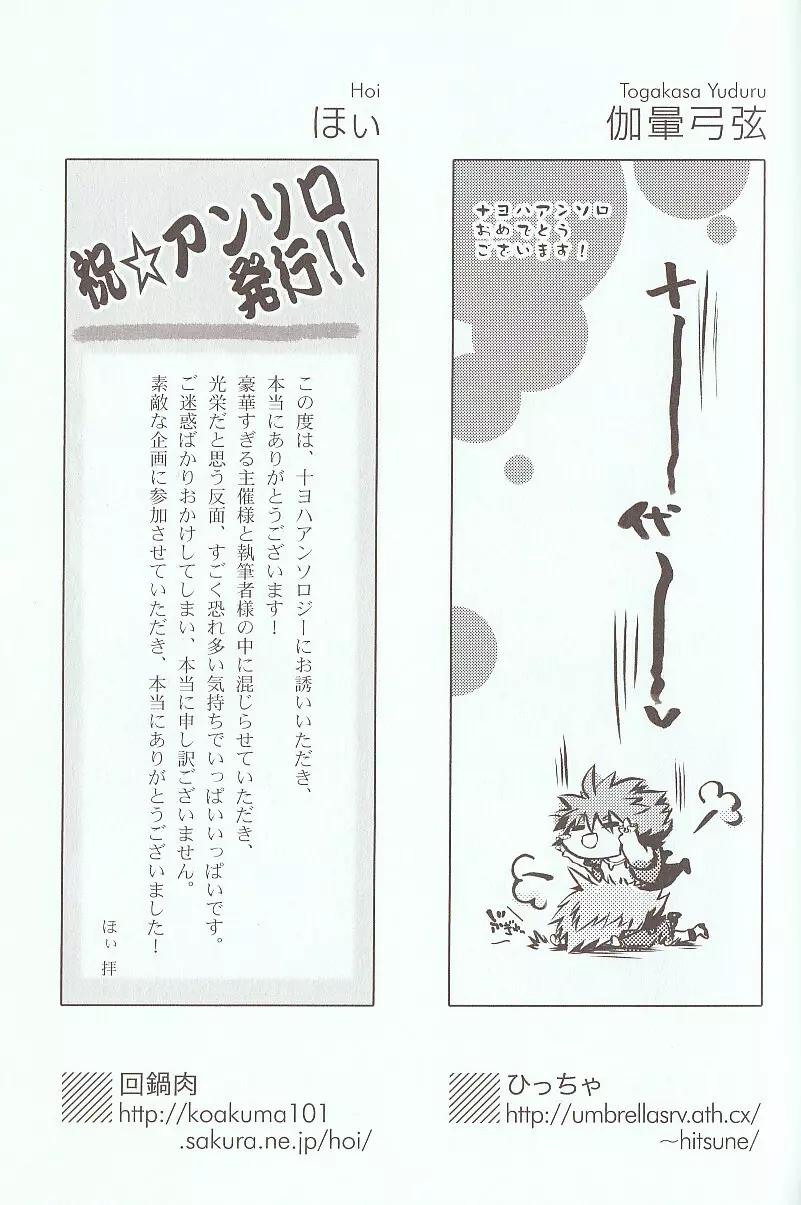 Togakasa Yuduru
伽暈弓弦
十ヨハアンソロ
おめでとう
ございます!
十
代
ひっちゃ
http://umbrellasrv.ath.cx/
~hitsune/
Hoi
ほぃ
祝☆アンソロ
発行!!
この度は、十ヨハアンソロジーにお誘いいただき、
本当にありがとうございます!
豪華すぎる主催様と執筆者様の中に混じらせていただき、
光栄だと思う反面、すごく恐れ多い気持ちでいっぱいいっぱいです。
ご迷惑ばかりおかけしてしまい、本当に申し訳ございません。
素敵な企画に参加させていただき、本当にありがとうございました!
ほぃ 拝
回鍋肉
http://koakuma101
.sakura.ne.jp/hoi/